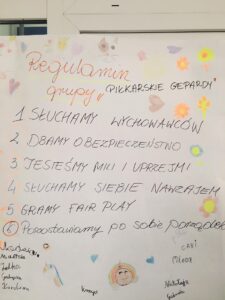 Regulamin
grupy „PIŁKARSKIE GEPARDY"
1 SŁUCHAMY WYCHOWAWCÓW
2 DBAMY O BEZPIECZEŃSTWO
3 JESTEŚMY MILI I UPRZEJMI
4 SŁUCHAMY SIEBIE NAWZAJEM
5 GRAMY FAIR PLAY
6 Pozostawiamy po sobie porządek
GABI